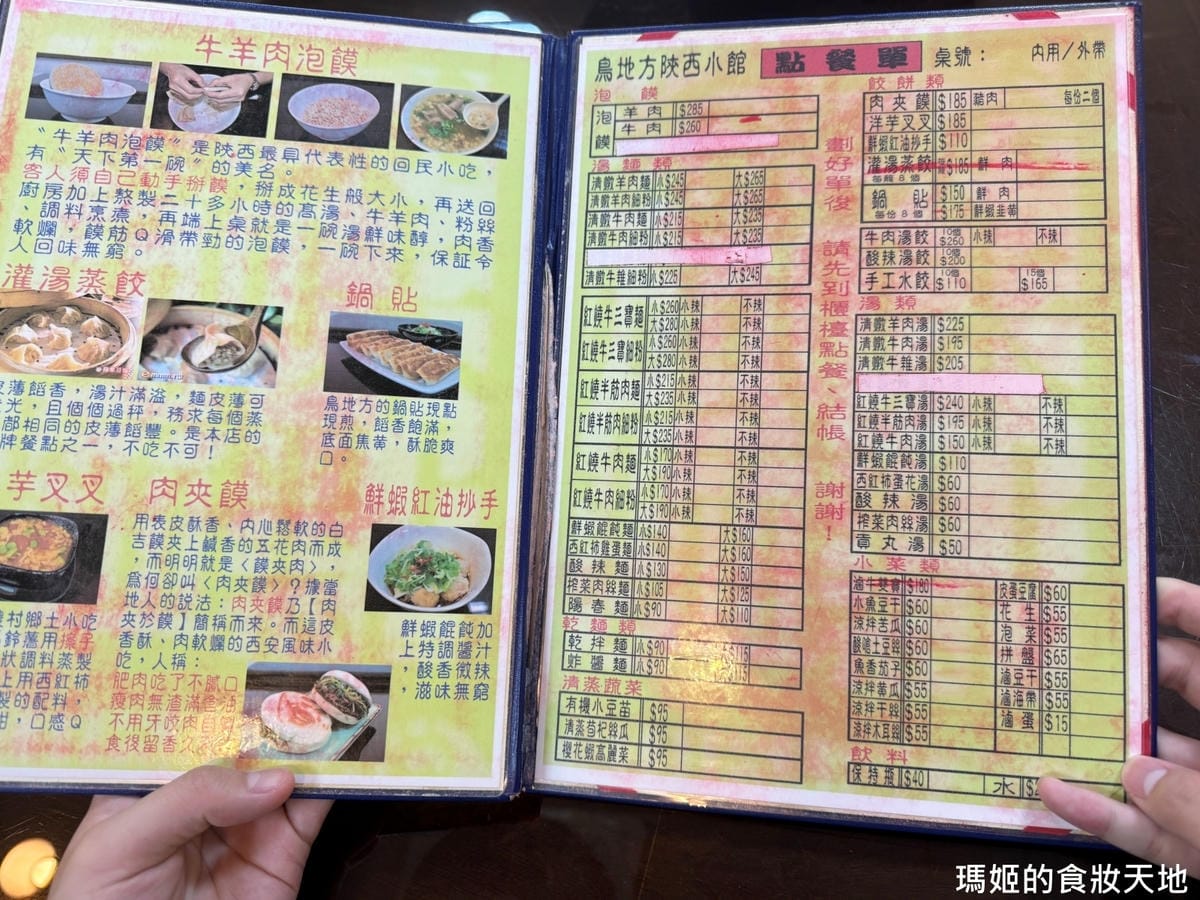 牛羊肉泡饃
〝牛羊肉泡饃〞是陝西最具代表性的回民小吃,
有〝天下第一碗〞的美名。
客人須自己動手掰饃,掰成花生般大小,再送回
廚房加上熬製二十多小時的高湯、牛羊肉、粉絲
、調料烹煮,再端上桌就是一碗湯鮮味醇,肉香
軟爛,饃筋Q滑帶勁的泡饃,一碗下來,保証令
人回味無窮。
灌湯蒸餃
皮薄餡香,湯汁滿溢,麵皮薄可
光,且個個過秤,務求每個蒸
都相同的皮薄餡豐。是本店的
牌餐點之一,不吃不可!
鍋貼
烏地方的鍋貼現點
現煎,餡香飽滿,
底面焦黃,酥脆爽
口。
芋叉叉
村鄉土小吃
肉夾饃
用表皮酥香、內心鬆軟的白
吉饃夾上鹹香的五花肉而成
,而明明就是〈饃夾肉〉,
為何卻叫〈肉夾饃〉?據當
地人的說法:肉夾饃乃【肉
夾於饃】簡稱而來。而這皮
香酥、肉軟爛的西安風味小
吃,人稱:
肥肉吃了不膩口
瘦肉無渣滿
不用牙咬肉自
食後留香久
鮮蝦紅油抄手
鮮蝦餛飩加
上特調醬汁
,酸香微辣
,滋味無窮
烏地方陝西小館 點餐單 桌號: 內用/外帶
泡饃
泡饃 羊肉 $285
牛肉 $260
湯麵類
清燉羊肉麵 小$245 大$265
清燉羊肉細粉 小$245 大$265
清燉牛肉麵 小$215 大$235
清燉牛肉細粉 小$215 大$235
清燉牛雜細粉 小$225 大$245
紅燒牛三寶麵 小$260 小辣 不辣
大$280 小辣 不辣
紅燒牛三寶細粉 小$260 小辣 不辣
大$280 小辣 不辣
紅燒半筋肉麵 小$215 小辣 不辣
大$235 小辣 不辣
紅燒半筋肉細粉 小$215 小辣 不辣
大$235 小辣 不辣
紅燒牛肉麵 小$170 小辣 不辣
大$190 小辣 不辣
紅燒牛肉細粉 小$170 小辣 不辣
大$190 小辣 不辣
鮮蝦餛飩麵 小$140 大$160
西紅柿雞蛋麵 小$140 大$160
酸辣麵 小$130 大$150
榨菜肉絲麵 小$105 大$125
陽春麵 小$90 大$110
乾麵類
乾拌麵 小$90 大$115
炸醬麵 小$90 大$115
清蒸蔬菜
有機小豆苗 $95
清蒸枸杞絲瓜 $95
櫻花蝦高麗菜 $95
劃好單後、請先到櫃檯點餐、結帳、謝謝!
餃餅類
肉夾饃 $185 豬肉 每份二個
洋芋叉叉 $185
鮮蝦紅油抄手 $110
灌湯蒸餃 每籠8個 $185 鮮肉
鍋貼 每份8個 $150 鮮肉
$175 鮮蝦韭黃
牛肉湯餃 10個 $260 小辣 不辣
酸辣湯餃 10個 $200
手工水餃 10個 $110 15個 $165
湯類
清燉羊肉湯 $225
清燉牛肉湯 $195
清燉牛雜湯 $205
紅燒牛三寶湯 $240 小辣 不辣
紅燒半筋肉湯 $195 小辣 不辣
紅燒牛肉湯 $150 小辣 不辣
鮮蝦餛飩湯 $110
西紅柿蛋花湯 $60
酸辣湯 $60
榨菜肉絲湯 $60
貢丸湯 $50
小菜類
滷牛雙寶 $180 皮蛋豆腐 $60
小魚豆干 $60 花生 $55
涼拌苦瓜 $60 泡菜 $55
酸嗆土豆絲 $60 拼盤 $65
魚香茄子 $60 滷豆干 $55
涼拌黃瓜 $55 滷海帶 $55
涼拌干絲 $55 滷蛋 $15
涼拌木耳絲 $55
飲料
保特瓶 $40 水
瑪姬的食妝天地